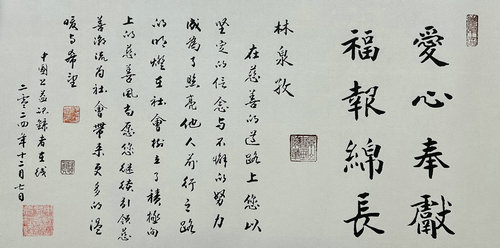 愛心奉獻
福報綿長
林泉孜
在慈善的道路上您以
堅定的信念与不懈的努力
成爲了照亮他人前行之路
的明燈在社會樹立了積極向
上的慈善風尚愿您继续引領慈
善潮流为社會帶来更多的温
暖与希望
中國公益记録者在线
二零二四年十二月七日